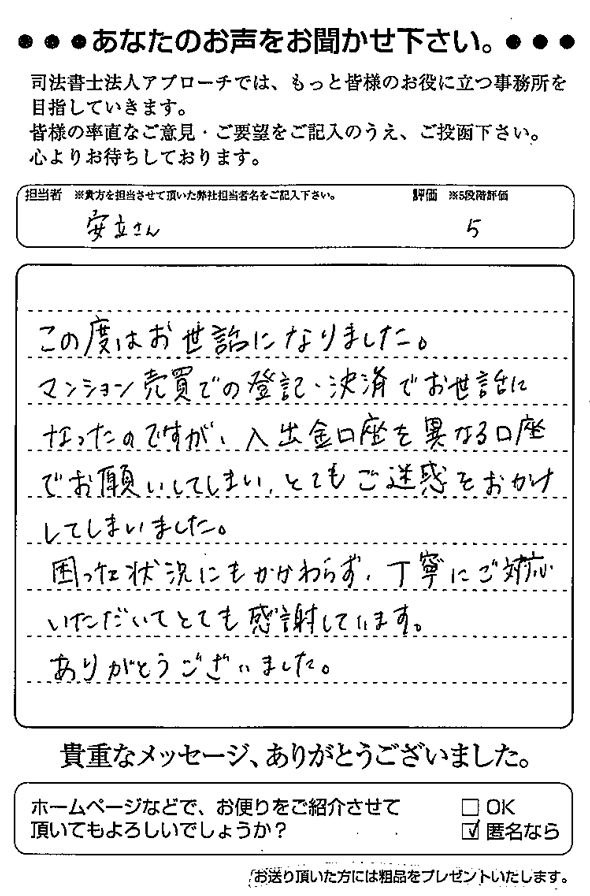 ●●●あなたのお声をお聞かせ下さい。●●●
司法書士法人アプローチでは、もっと皆様のお役に立つ事務所を
目指していきます。
皆様の率直なご意見・ご要望をご記入のうえ、ご投函下さい。
心よりお待ちしております。
担当者 ※貴方を担当させて頂いた弊社担当者名をご記入下さい。 評価 ※5段階評価
安立さん 5
この度はお世話になりました。
マンション売買での登記・決済でお世話に
なったのですが、入出金口座を異なる口座
でお願いしてしまい、とてもご迷惑をおかけ
してしまいました。
困った状況にもかかわらず、丁寧にご対応
いただいてとても感謝しています。
ありがとうございました。
貴重なメッセージ、ありがとうございました。
ホームページなどで、お便りをご紹介させて □ OK
頂いてもよろしいでしょうか？ ☑ 匿名なら
お送り頂いた方には粗品をプレゼントいたします。